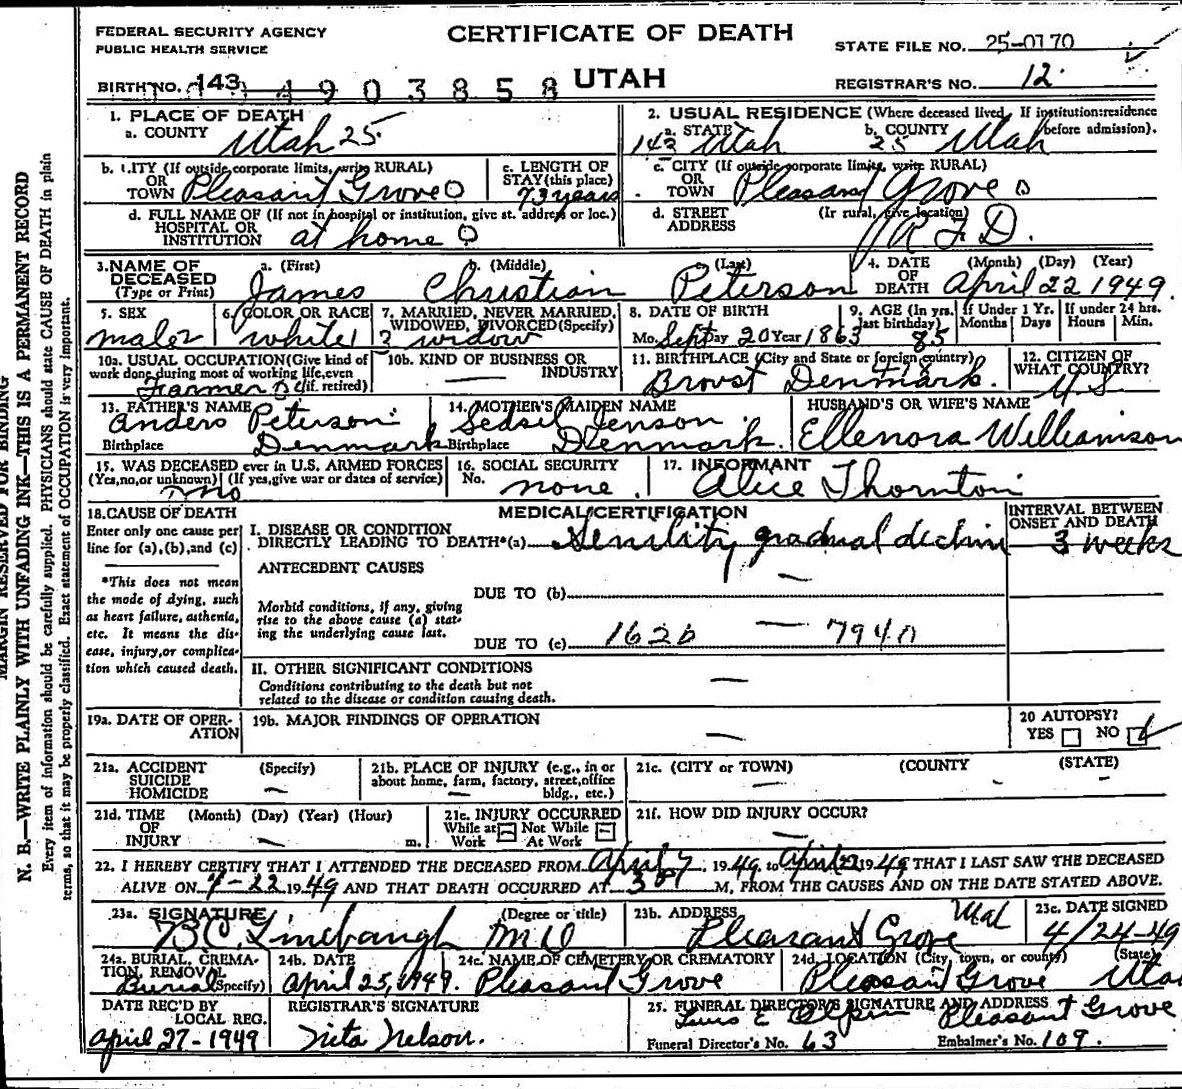 MARGIN RESERVED FOR BINDING
N. B.—WRITE PLAINLY WITH UNFADING INK—THIS IS A PERMANENT RECORD
Every item of information should be carefully supplied. PHYSICIANS should state CAUSE OF DEATH in plain
terms, so that it may be properly classified. Exact statement of OCCUPATION is very important.
FEDERAL SECURITY AGENCY
PUBLIC HEALTH SERVICE
CERTIFICATE OF DEATH
UTAH
STATE FILE NO. 25-0170
REGISTRAR'S NO. 12.
BIRTH NO. 143 4903858
1. PLACE OF DEATH
a. COUNTY Utah 25
b. CITY (If outside corporate limits, write RURAL)
OR
TOWN Pleasant Grove 0
c. LENGTH OF
STAY (this place)
73 years
d. FULL NAME OF (If not in hospital or institution, give st. address or loc.)
HOSPITAL OR
INSTITUTION at home 0
2. USUAL RESIDENCE (Where deceased lived. If institution: residence
before admission).
a. STATE 143 Utah b. COUNTY 25 Utah
c. CITY (If outside corporate limits, write RURAL)
OR
TOWN Pleasant Grove 0
d. STREET
ADDRESS
(If rural, give location)
R F D.
3. NAME OF
DECEASED
(Type or Print)
a. (First) James
b. (Middle) Christian
c. (Last) Peterson
4. DATE
OF
DEATH
(Month) (Day) (Year)
April 22 1949.
5. SEX
male
6. COLOR OR RACE
white 1
7. MARRIED, NEVER MARRIED,
WIDOWED, DIVORCED (Specify)
3 widow
8. DATE OF BIRTH
Mo. Sept Day 20 Year 1863
9. AGE (In yrs.
last birthday)
85
If Under 1 Yr.
Months Days
If under 24 hrs.
Hours Min.
10a. USUAL OCCUPATION (Give kind of
work done during most of working life, even
if retired)
Farmer
10b. KIND OF BUSINESS OR
INDUSTRY
—
11. BIRTHPLACE (City and State or foreign country)
Brovst Denmark.
12. CITIZEN OF
WHAT COUNTRY?
U.S.
13. FATHER'S NAME
Anders Peterson
Birthplace Denmark
14. MOTHER'S MAIDEN NAME
Jenson
Birthplace Denmark.
HUSBAND'S OR WIFE'S NAME
Ellenora Williamson
15. WAS DECEASED ever in U.S. ARMED FORCES
(Yes, no, or unknown) (If yes, give war or dates of service)
no
16. SOCIAL SECURITY
No. none.
17. INFORMANT
Alice Thornton
18. CAUSE OF DEATH
Enter only one cause per
line for (a), (b), and (c)
*This does not mean
the mode of dying, such
as heart failure, asthenia,
etc. It means the dis-
ease, injury, or complica-
tion which caused death.
MEDICAL CERTIFICATION
I. DISEASE OR CONDITION
DIRECTLY LEADING TO DEATH*(a) Senility gradual decline
INTERVAL BETWEEN
ONSET AND DEATH
3 weeks
ANTECEDENT CAUSES
Morbid conditions, if any, giving
rise to the above cause (a) stat-
ing the underlying cause last.
DUE TO (b) —
DUE TO (c) 162b — 7940
II. OTHER SIGNIFICANT CONDITIONS
Conditions contributing to the death but not
related to the disease or condition causing death.
—
19a. DATE OF OPER-
ATION
19b. MAJOR FINDINGS OF OPERATION
—
20 AUTOPSY?
YES NO
21a. ACCIDENT
SUICIDE
HOMICIDE
(Specify)
—
21b. PLACE OF INJURY (e.g., in or
about home, farm, factory, street, office
bldg., etc.)
—
21c. (CITY or TOWN) (COUNTY (STATE)
— - -
21d. TIME
OF
INJURY
(Month) (Day) (Year) (Hour)
— m.
21e. INJURY OCCURRED
While at Not While
Work At Work
21f. HOW DID INJURY OCCUR?
—
22. I HEREBY CERTIFY THAT I ATTENDED THE DECEASED FROM April 7, 1949, to April 22 1949 THAT I LAST SAW THE DECEASED
ALIVE ON 4-22 1949 AND THAT DEATH OCCURRED AT M, FROM THE CAUSES AND ON THE DATE STATED ABOVE.
23a. SIGNATURE (Degree or title)
B C Linebaugh M D
23b. ADDRESS
Pleasant Grove Utah
23c. DATE SIGNED
4/24-49
24a. BURIAL, CREMA-
TION, REMOVAL
(Specify)
Burial
24b. DATE
April 25, 1949.
24c. NAME OF CEMETERY OR CREMATORY
Pleasant Grove
24d. LOCATION (City, town, or county) (State)
Pleasant Grove Utah
DATE REC'D BY
LOCAL REG.
April 27-1949
REGISTRAR'S SIGNATURE
Nita Nelson.
25. FUNERAL DIRECTOR'S SIGNATURE AND ADDRESS
E Pleasant Grove
Funeral Director's No. 63 Embalmer's No. 109.